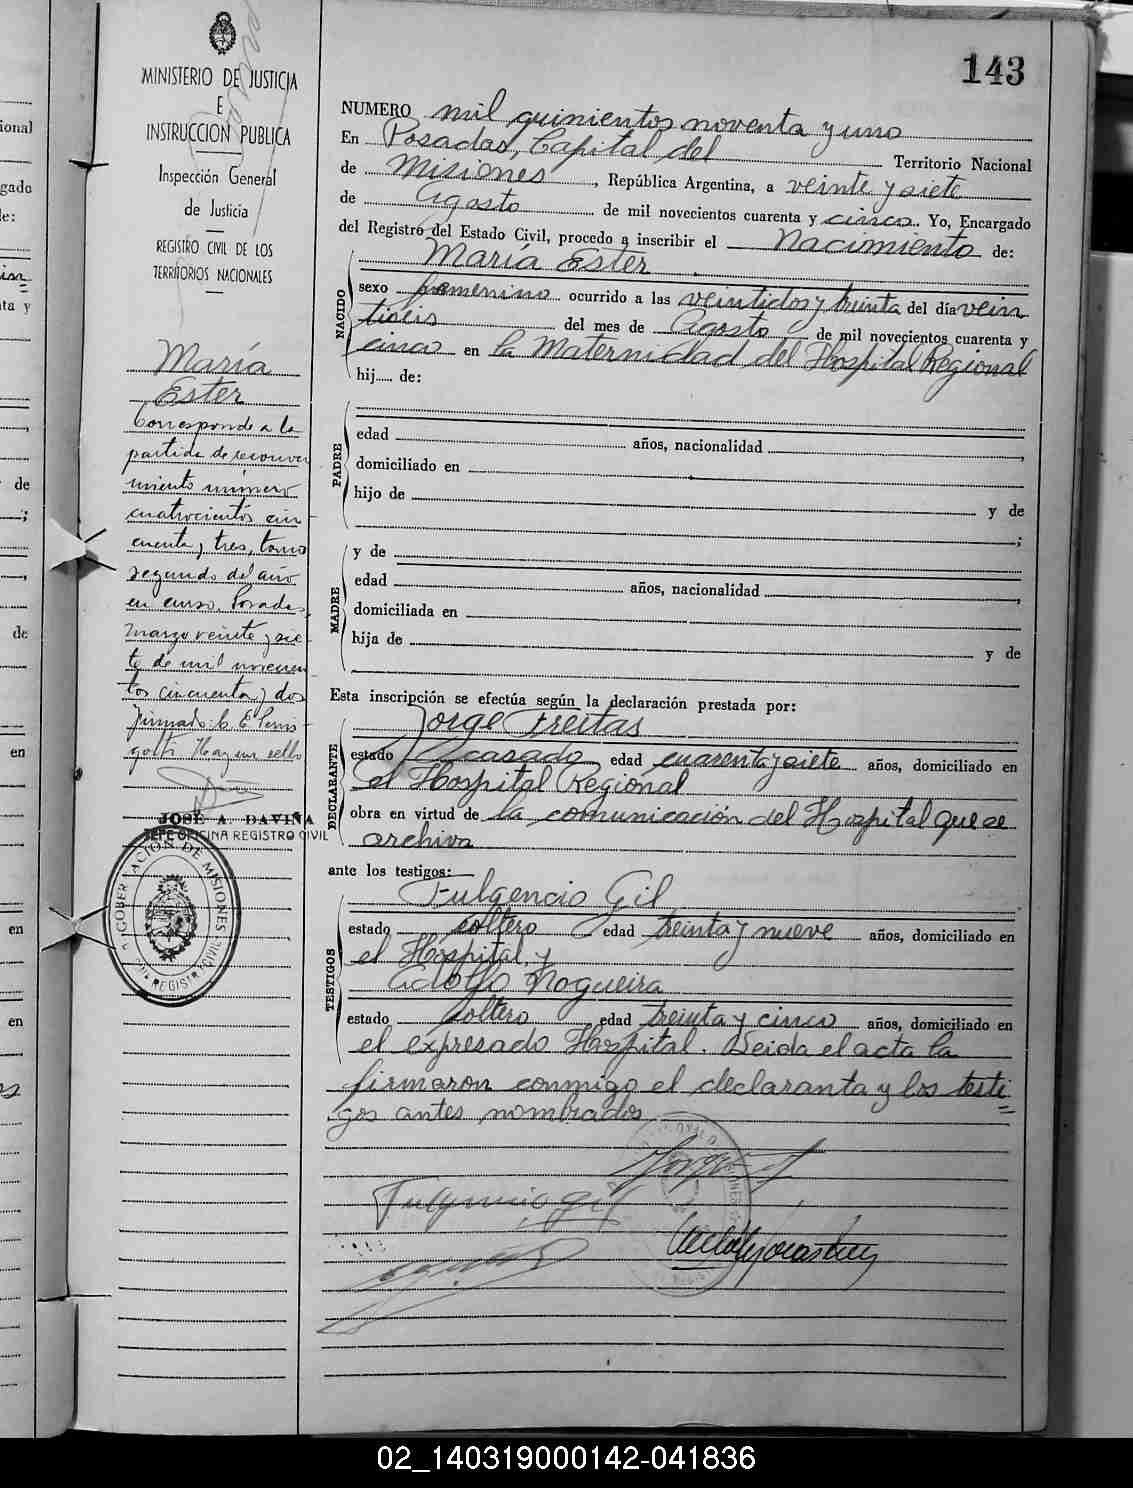 143
MINISTERIO DE JUSTICIA
E
INSTRUCCION PUBLICA
Inspección General
de Justicia
REGISTRO CIVIL DE LOS
TERRITORIOS NACIONALES
María
Ester
Corresponde a la
partida de reconoci
miento número
cuatrocientos cin
cuenta y tres, tomo
segundo del año
en curso. Posadas,
Marzo veinte y sie
te de mil novecien
tos cincuenta y dos
Firmado: C. E.
Hay un sello
JOSÉ A. DAVIÑA
JEFE OFICINA REGISTRO CIVIL
GOBERNACION DE MISIONES
REGISTRO CIVIL
NUMERO mil quinientos noventa y uno
En Posadas, Capital del Territorio Nacional
de Misiones, República Argentina, a veinte y siete
de Agosto de mil novecientos cuarenta y cinco. Yo, Encargado
del Registro del Estado Civil, procedo a inscribir el Nacimiento de:
NACIDO
María Ester
sexo femenino ocurrido a las veintidos y treinta del día vein
tiseis del mes de Agosto de mil novecientos cuarenta y
cinco en la Maternidad del Hospital Regional
hij..... de:
PADRE
edad años, nacionalidad ,
domiciliado en
hijo de y de
;
MADRE
y de
edad años, nacionalidad ,
domiciliada en
hija de y de
Esta inscripción se efectúa según la declaración prestada por:
DECLARANTE
Jorge Freitas
estado casado edad cuarenta y siete años, domiciliado en
el Hospital Regional
obra en virtud de la comunicación del Hospital que se
archiva
ante los testigos:
TESTIGOS
Fulgencio Gil
estado soltero edad treinta y nueve años, domiciliado en
el Hospital, y
Adolfo Nogueira
estado soltero edad treinta y cinco años, domiciliado en
el expresado Hospital. Leida el acta la
firmaron conmigo el declaranta y los testi=
gos antes nombrados
Fulgencio Gil
02_140319000142-041836